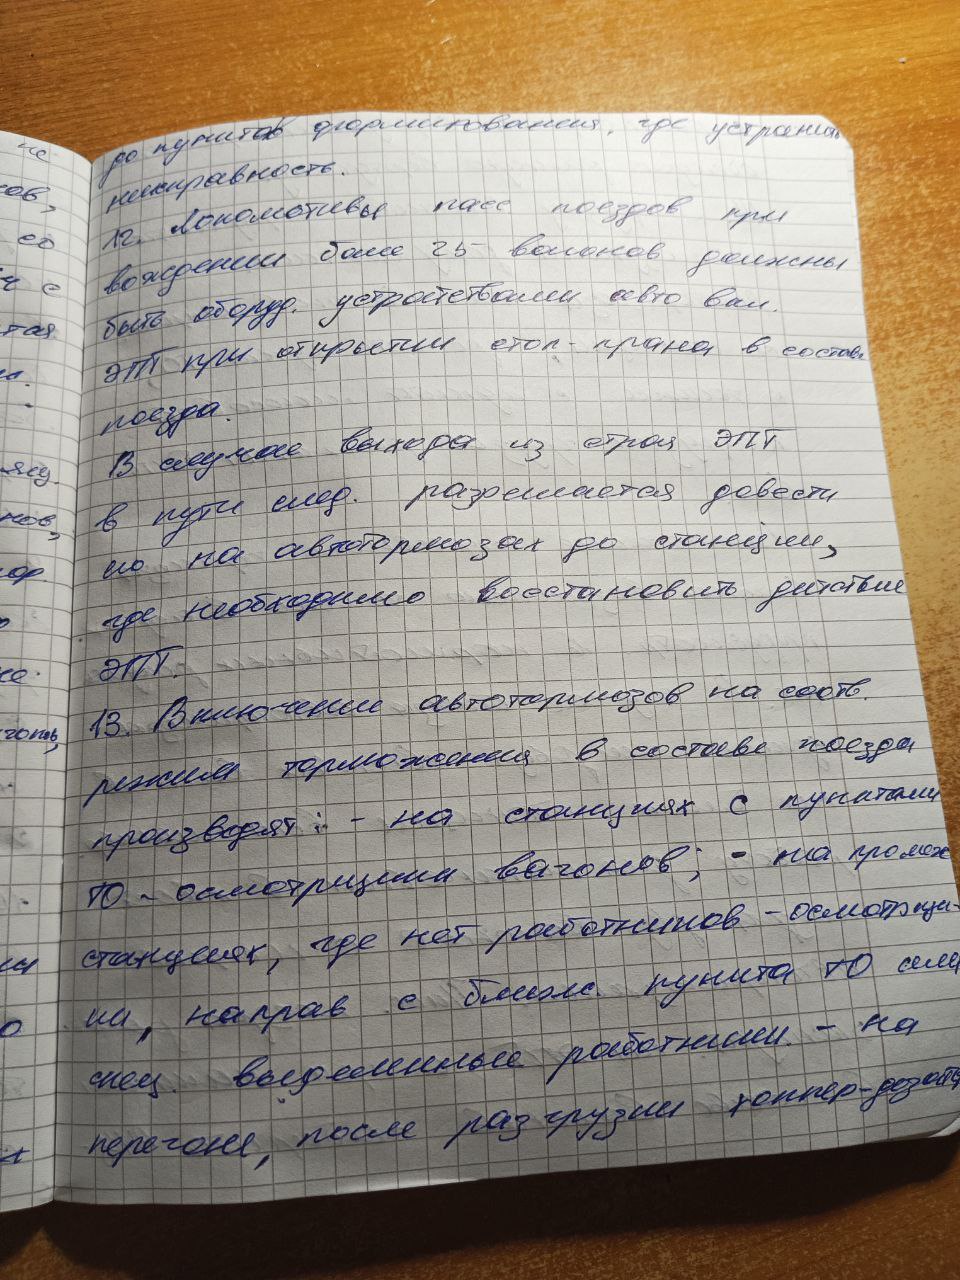 до пунктов формирования, где устранить
неисправность.
12. Локомотивы пасс поездов при
вождении более 25 вагонов должны
быть оборуд. устройствами авто вкл.
ЭПТ при открытии стоп-крана в составе
поезда.
В случае выхода из строя ЭПТ
в пути след. разрешается довести
его на автотормозах до станции,
где необходимо восстановить действие
ЭПТ.
13. Включение автотормозов на соотв.
режим торможения в составе поезда
производят: - на станциях с пунктами
ТО - осмотрщики вагонов; - на промеж
станциях, где нет работников - осмотрщи-
ки, направ с ближ. пункта ТО или
спец. выделенные работники - на
перегоне, после разгрузки хоппер-дозато
не
ов,
его
с
тая
нов,
о